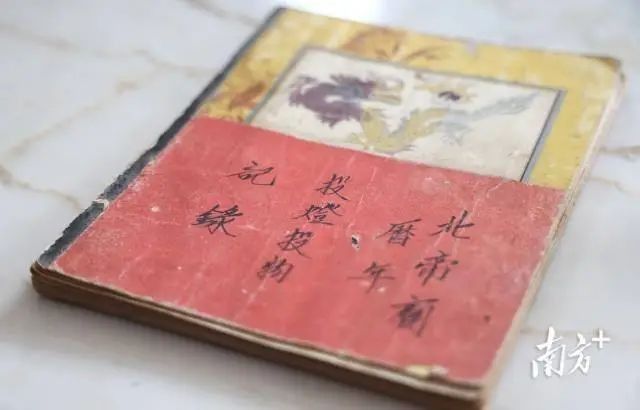 北帝
曆年
投燈投物
記錄
南方+